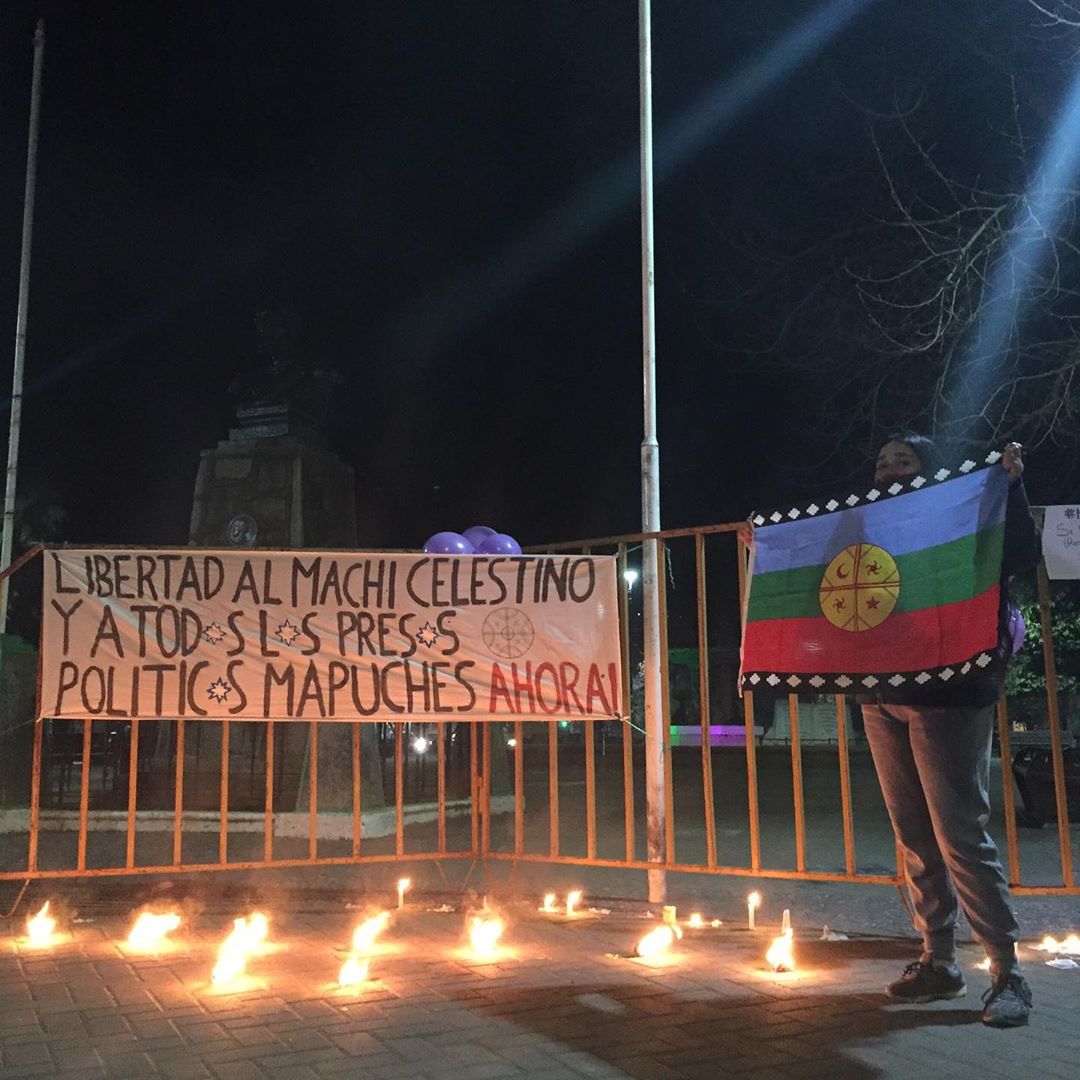 LIBERTAD AL MACHI CELESTINO
Y A TOD✴S L✴S PRES✴S
POLITIC✴S MAPUCHES AHORA!